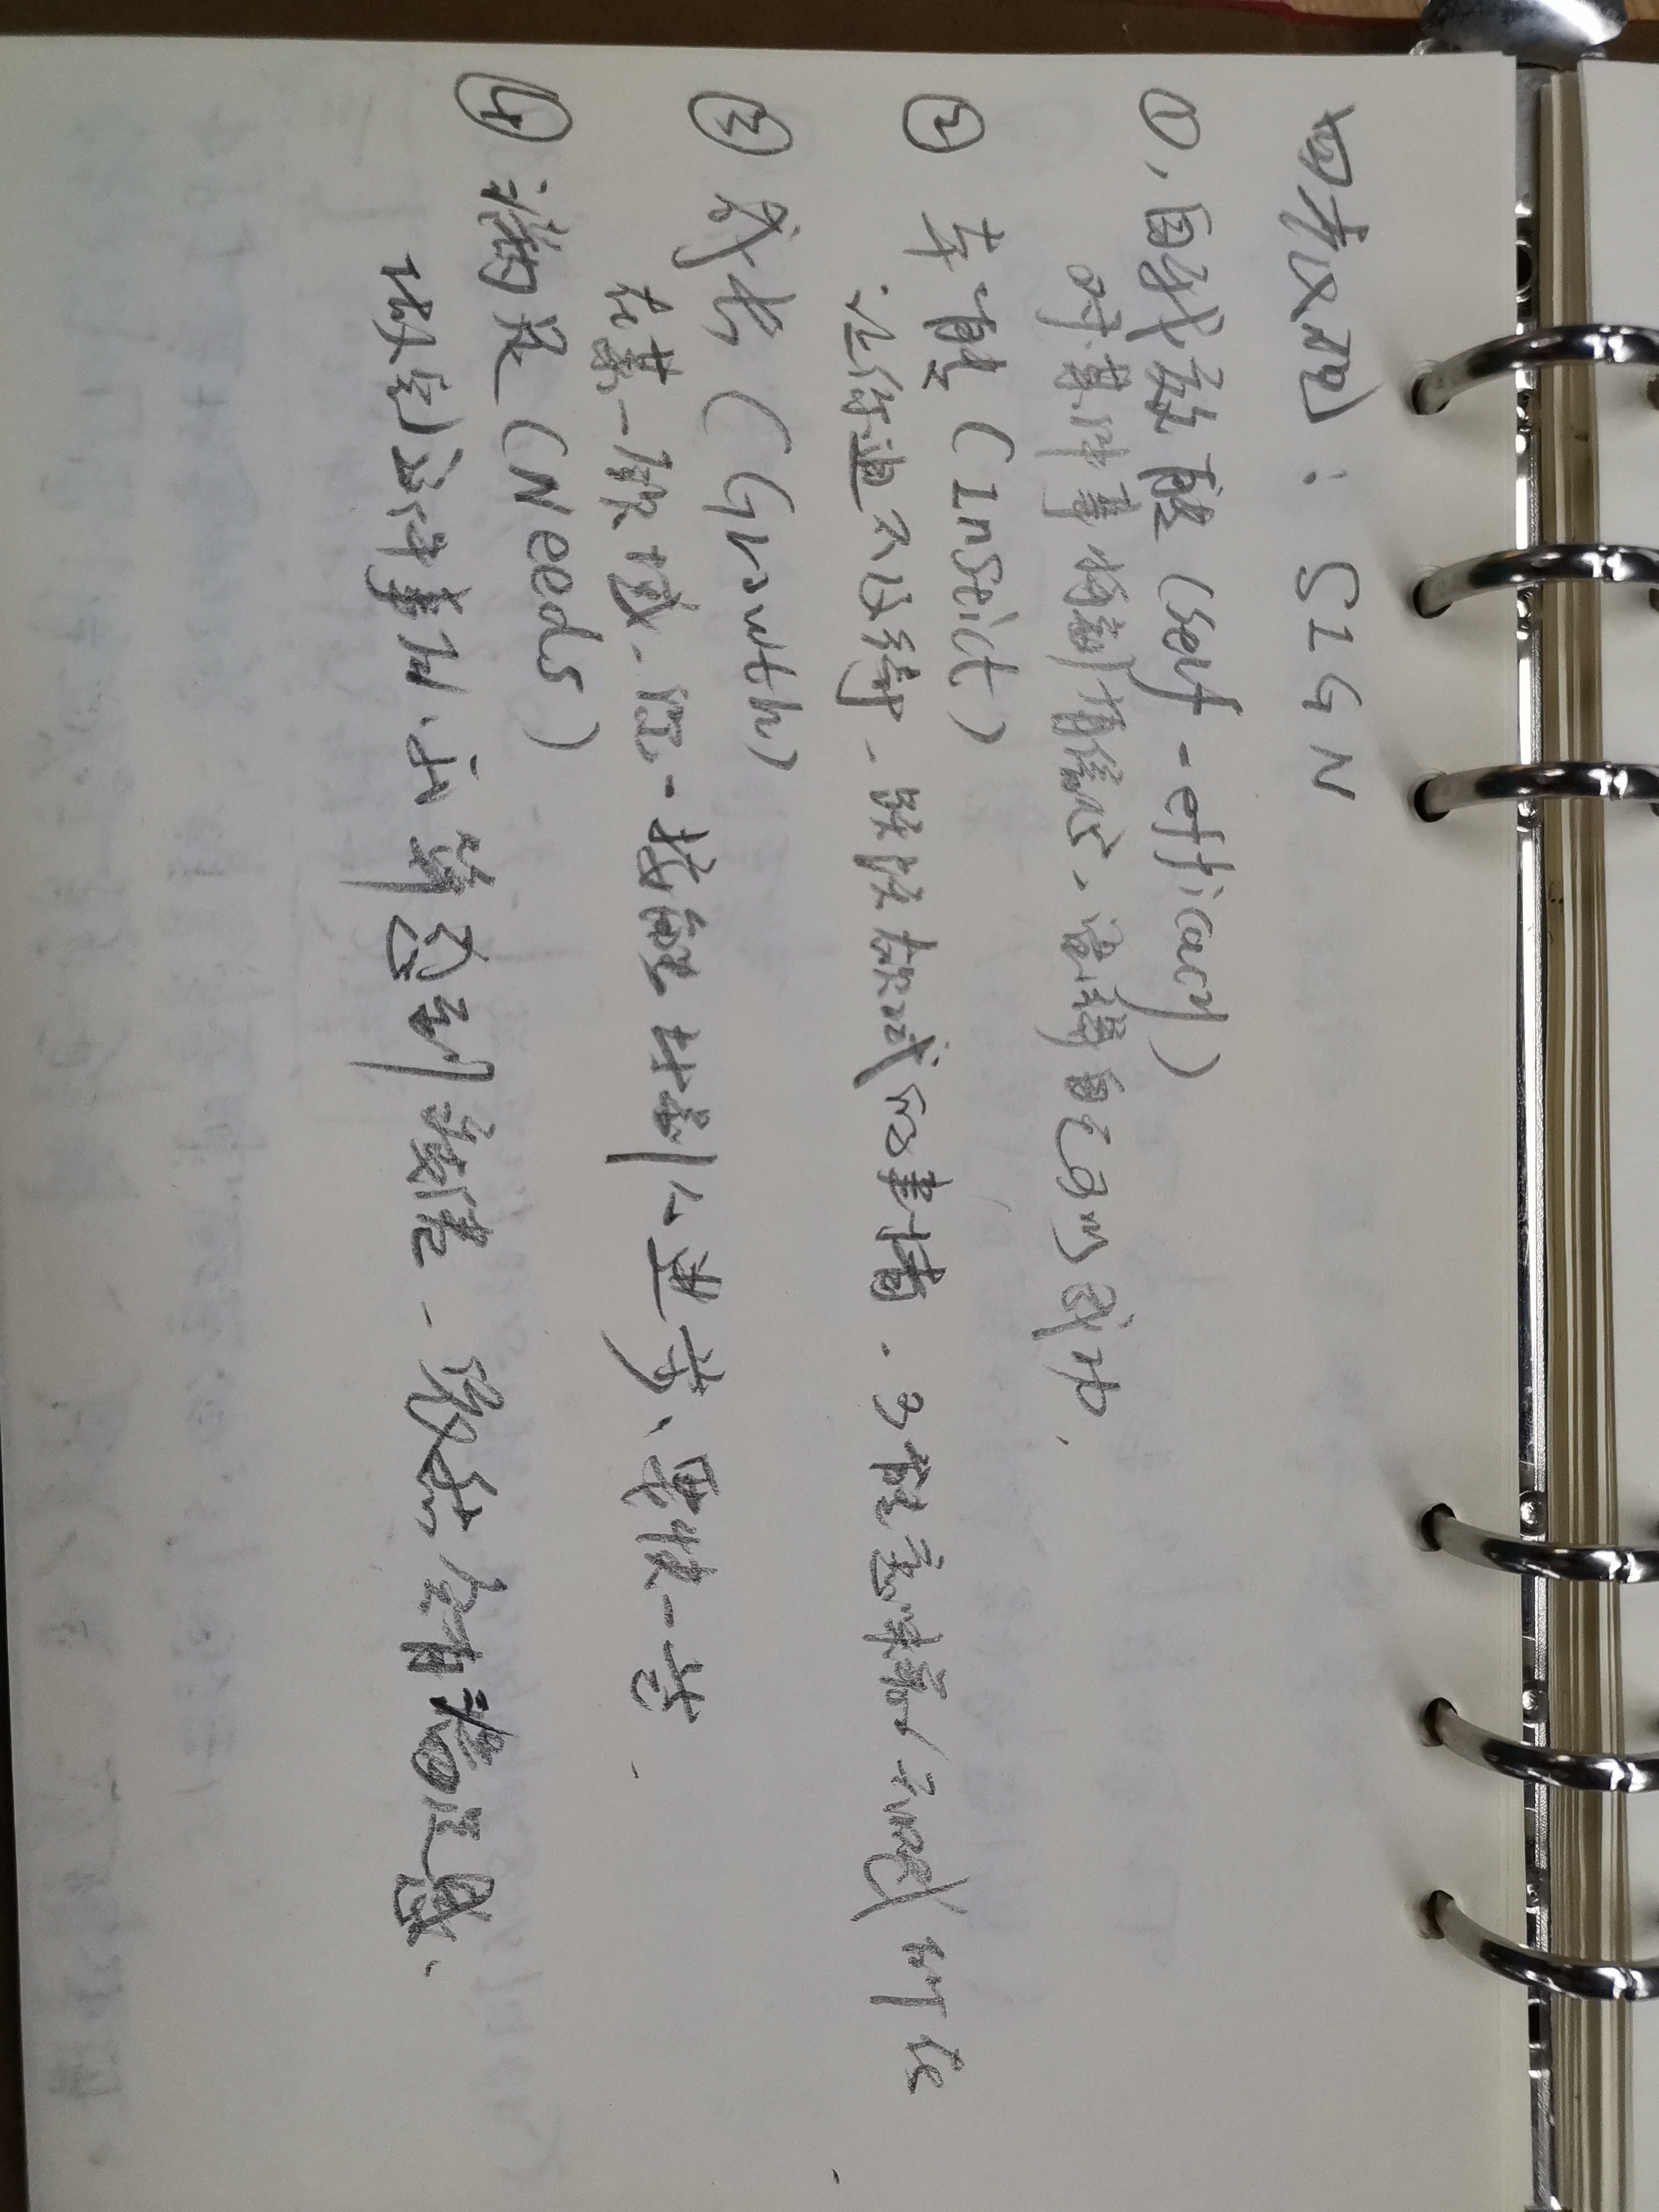 四表现：SIGN
①，自我效能（self-efficacy）
对某件事特别有信心，觉得自己可以成功，
② 本能（Insticts）
让你迫不及待、跃跃欲试的事情，可能意味着天赋所在
③ 成长（Growth）
在某一领域、你一接触比别人进步、要快一些，
④ 满足（Needs）
做完这件事后，就算感到疲倦、依然会有满足感、